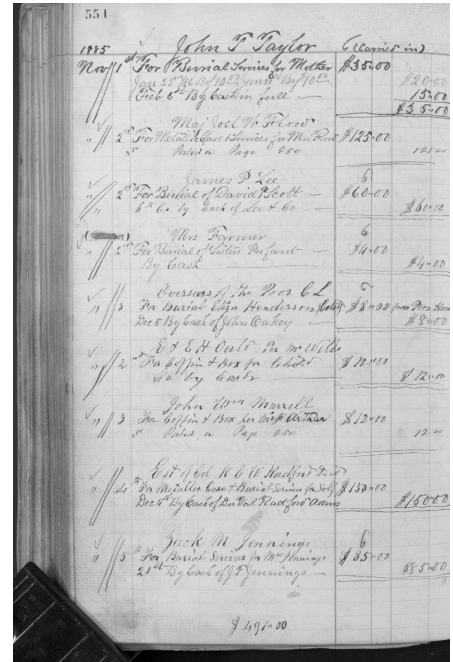 551
1885 John T Taylor (Carried in)
Nov 1st For Burial Services for Mother $35.00
$20.00
Feb 6th By Cash in full 15.00
$35.00
Maj Joel W Flood
" 2nd For Metallic Case & Services for Mrs Flood $125.00
Posted on Page 250 125.00
James P Lee 6
" 2nd For Burial of David P Scott — $60.00
6th Cr by Cash of Lee & Co $60.00
Mrs Farmer 6
" 2nd For Burial of Sisters Infant — $4.00
By Cash $4.00
Overseers of the Poor C L 6
" 3 For Burial Eliza Henderson $8.00
Dec 5 By Cash of John Oakey — $8.00
E & E H Ould
" 2 For Coffin & Box for Child $12.00
Cr by Cash $12.00
John Wm Murrell
" 3 For Coffin & Box for Miss Arthur $12.00
Posted on Page 250 12.00
Est of Col R C W Radford
" 4th For Metallic Case & Burial Services for Self $150.00
Dec 4th By Cash of DuVal Radford Admr $150.00
Jack M Jennings 6
" 5th For Burial Services for Mrs Jennings $85.00
21st By Cash of J T Jennings — $85.00
$491.00